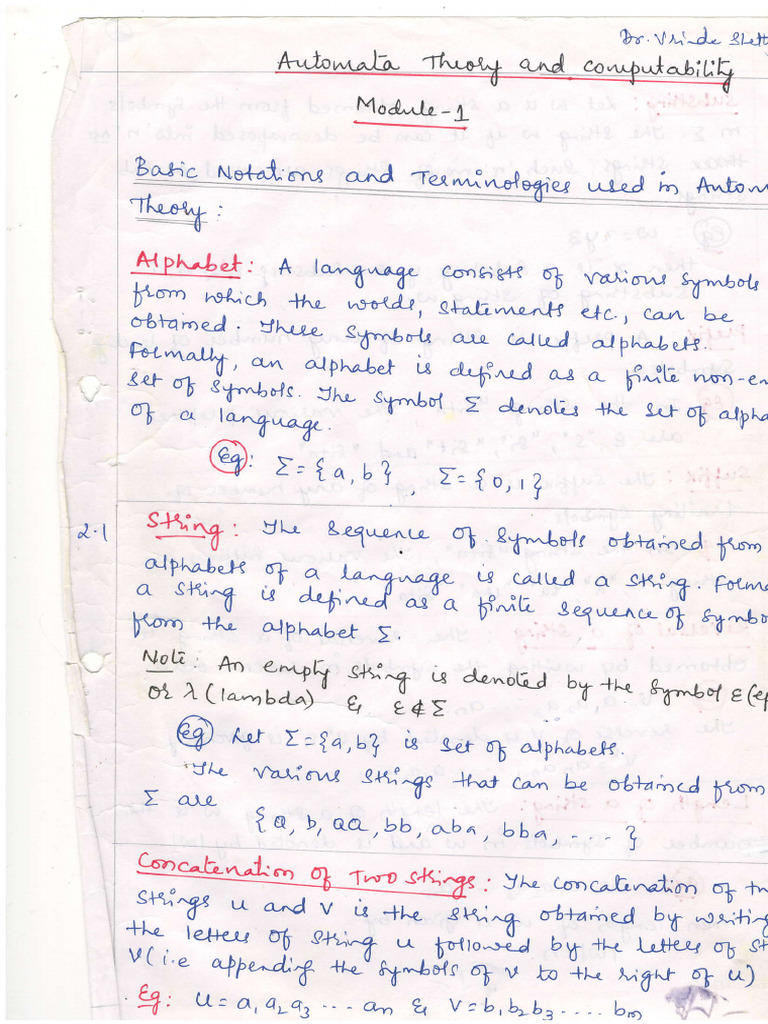 Dr. Vrinda Shett
Automata Theory and computability
Module-1
Basic Notations and Terminologies used in Autom
Theory:
Alphabet: A language consists of various symbols
from which the words, statements etc., can be
obtained. These symbols are called alphabets.
Formally, an alphabet is defined as a finite non-em
set of symbols. The symbol Σ denotes the set of alpha
of a language.
Eg: Σ={a,b}, Σ={0,1}
2.1 String: The sequence of symbols obtained from
alphabets of a language is called a string. Forma
a string is defined as a finite sequence of symbo
from the alphabet Σ.
Note: An empty string is denoted by the symbol ε(ep
or λ(lambda) & ε∉Σ
eg Let Σ={a,b} is set of alphabets.
The various strings that can be obtained from
Σ are
{a, b, aa, bb, aba, bba, .... }
Concatenation of Two Strings: The concatenation of tw
strings u and v is the string obtained by writing
the letters of string u followed by the letters of st
v(i.e appending the symbols of v to the right of u)
Eg: u=a₁a₂a₃ ... an & v=b₁b₂b₃ .... bm